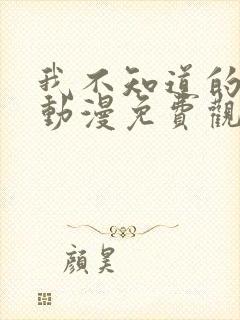 我不知道的
動漫免費觀
顏昊